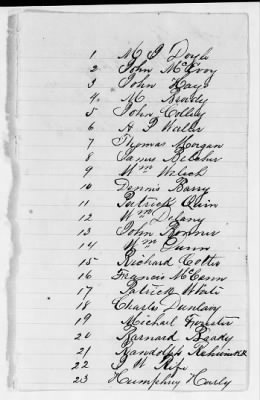 1 M P Doyle
2 John McEvoy
3 John Hays
4 M. Brady
5 John Colley
6 H P Waller
7 Thomas Morgan
8 James Belcher
9 Wm Welsh
10 Dennis Barry
11 Patrick Quin
12 Wm Delany
13 John Bonner
14 Wm Gunn
15 Richard
16 Francis McCann
17 Patrick White
18 Charles Dunlavy
19 Michael Forrester
20 Barnard Brady
21 Randolph
22 W Rife
23 Humphry Harly